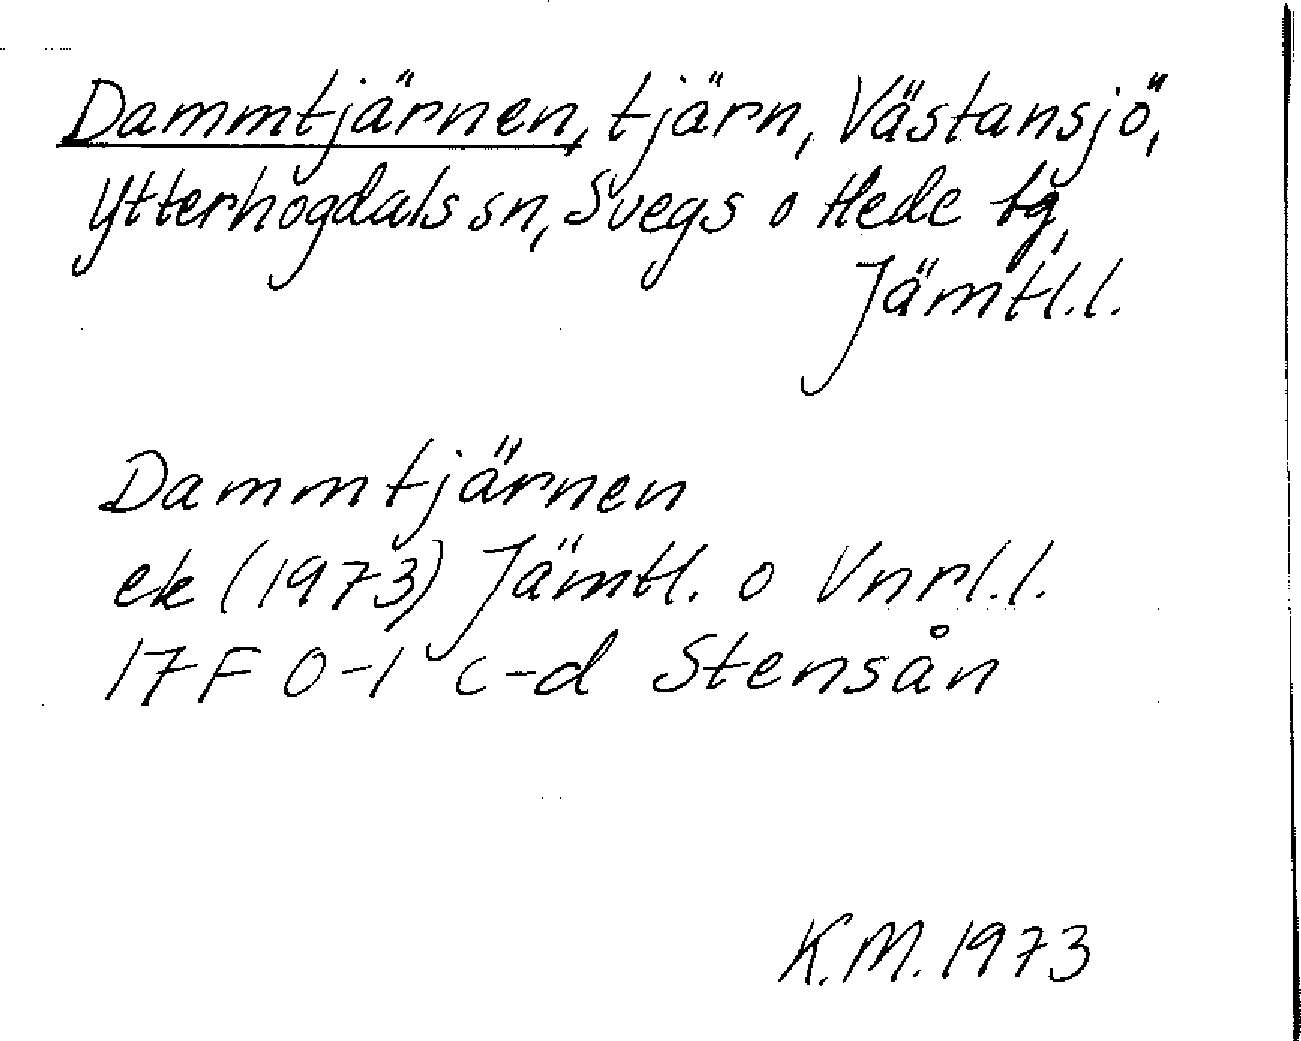 Dammtjärnen, tjärn, Västansjö,
Ytterhogdals sn, Svegs o Hede tg,
Jämtl.l.
Dammtjärnen
ek (1973) Jämtl. o Vnrl.l.
17F 0-1 c-d Stensån
K.M. 1973